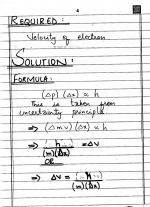 4
REQUIRED:
Velocity of electron
SOLUTION:
FORMULA:
(Δp) (Δx) ≈ h
This is taken from
uncertainty principle
⇒ (Δmv) (Δx) ≈ h
⇒ h = Δv
(m)(Δx)
OR
⇒ Δv = h
(m)(Δx)